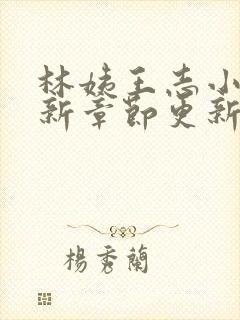 林姨王志小
新章節更新
楊秀蘭